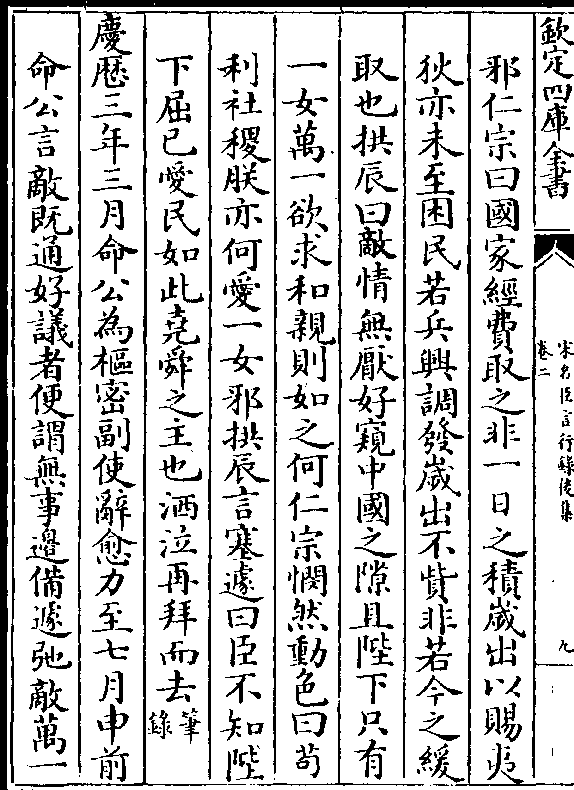 欽定四庫全書
宋名臣言行錄後集
卷二
九
邪仁宗曰國家經費取之非一日之積歲出以賜夷
狄亦未至困民若兵興調發歲出不貲非若今之緩
取也拱辰曰敵情無厭好窺中國之隙且陛下只有
一女萬一欲求和親則如之何仁宗憫然動色曰苟
利社稷朕亦何愛一女邪拱辰言塞遽曰臣不知陛
下屈已愛民如此堯舜之主也洒泣再拜而去筆錄
慶厯三年三月命公為樞密副使辭愈力至七月申前
命公言敵既通好議者便謂無事邊備遽弛敵萬一